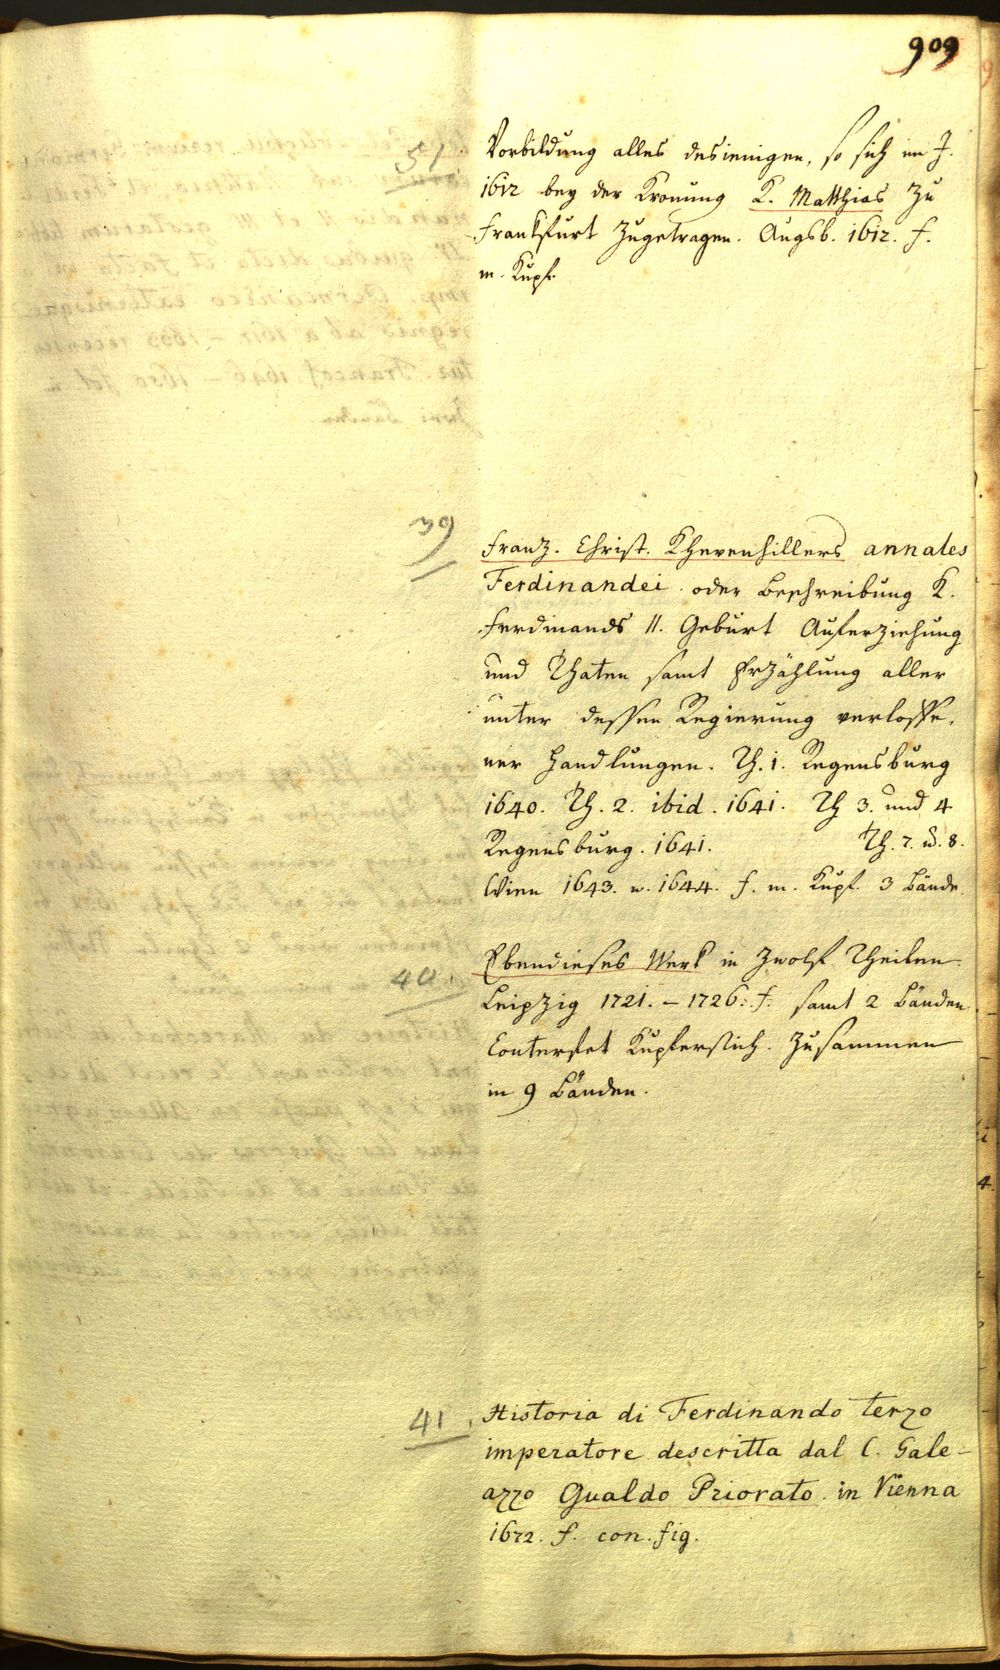 909
51.
Vorbildung alles desienigen, so sich im J.
1612 bey der Kronung K. Matthias zu
Frankfurt zugetragen. Augsb. 1612. f.
m. Kupf.
39
Franz. Christ. Khevenhillers annales
Ferdinandei oder Beschreibung K.
Ferdinands II. Geburt Auferziehung
und Thaten samt Erzählung aller
unter dessen Regierung verloffe,
ner Handlungen. Th. 1. Regensburg
1640. Th. 2. ibid. 1641. Th 3. und 4
Regensburg. 1641. Th. 7. u. 8.
Wien 1643. u. 1644. f. m. Kupf. 3 Bände.
40.
Ebendieses Werk in Zwolf Theilen.
Leipzig 1721. – 1726. f. samt 2 Bänden
Conterfet Kupferstich. Zusammen
in 9 Bänden.
41.
Historia di Ferdinando terzo
imperatore descritta dal C. Gale-
azzo Gualdo Priorato in Vienna
1672. f. con. fig.